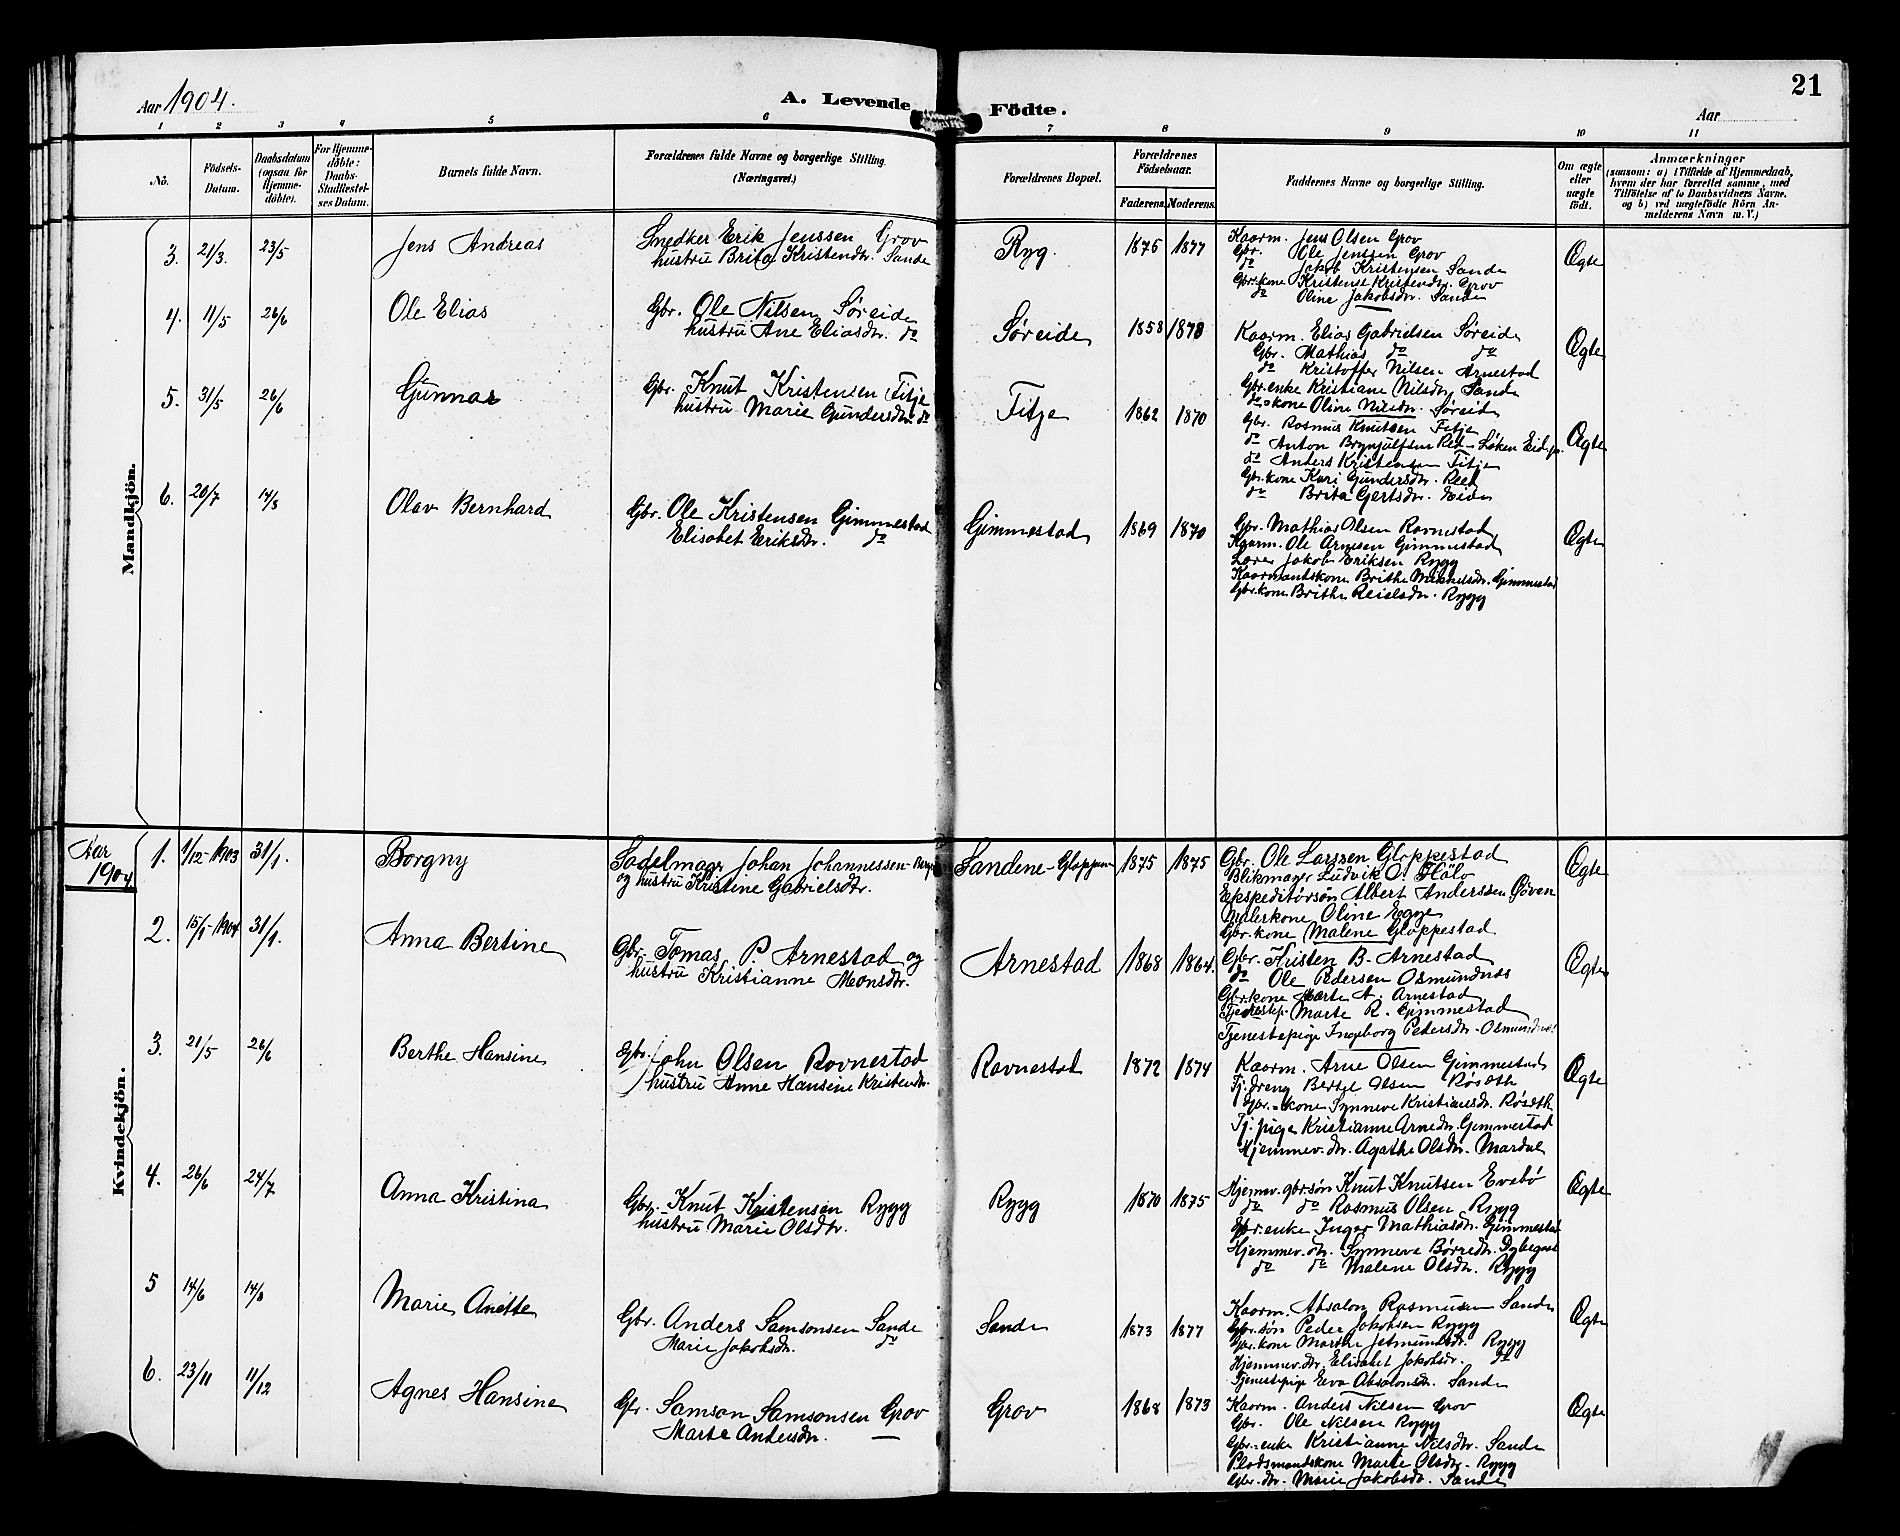 21
Aar 1904.
A. Levende Födte.
Aar
1 2 3 4 5 6 7 8 9 10 11
No.
Födsels-Datum.
Daabsdatum (ogsaa for Hjemme-döbte).
For Hjemme-döbte: Daabs-Stadfestel-ses Datum.
Barnets fulde Navn.
Forældrenes fulde Navne og borgerlige Stilling.
(Næringsvei.)
Forældrenes Bopæl.
Forældrenes Födselsaar.
Faderens. Moderens.
Faddernes Navne og borgerlige Stilling.
Om ægte eller uægte födt.
Anmærkninger
(saasom: a) i Tilfælde af Hjemmedaab, hvem der har forrettet samme, med Tilföielse af to Daabsvidners Navne. og b) ved uægtefödte Börn An-melderens Navn m. V.)
Mandkjön.
3. 21/3. 23/5 Jens Andreas
Snedker Erik Jenssen Grov
hustru Brita Kristendtr. Sande
Ryg. 1876 1877
Kaarm. Jens Olsen Grov
Gbr. Ole Jenssen Grov
do Jakob Kristensen Sande
Gbr.kone Kristense Kristendtr. Grov
do Oline Jakobsdtr. Sande
Ægte
4. 11/5 26/6 Ole Elias
Gbr. Ole Nilsen Søreide
hustru Ane Eliasdtr. do
Søreide 1858 1878
Kaarm. Elias Gabrielsen Søreide
Gbr. Mathias do do
do Kristoffer Nilsen Arnestad
Gbr.enke Kristiane Nilsdtr. Sande
do kone Oline Nilsdtr. Søreide
Ægte
5. 31/5 26/6 Gunnar
Gbr. Knut Kristensen Fitje
hustru Marie Gundersdtr. do
Fitje 1862 1870
Gbr. Rasmus Knutsen Fitje
do Anton Brynjulfsen Løken
do Anders Kristensen Fitje
Gbr.kone Kari Gundersdtr. Reed
do Brita Gjertsdtr. Eide
Ægte
6. 20/7 14/8 Olav Bernhard
Gbr. Ole Kristensen Gimmestad
Elisabet Eriksdtr. do
Gimmestad 1869 1870
Gbr. Mathias Olsen Ravnestad
Kaarm. Ole Arnesen Gimmestad
Lærer Jakob Eriksen Rygg
Kaarmandskone Brithe Gimmestad
Gbr.kone Brithe Rygg
Ægte
Aar 1904
Kvindekjön.
1. 1/12-1903 31/1. Borgny
Sadelmager Johan Johannessen
og hustru Kristine Gabrielsdtr.
Sandene-Gloppen 1875 1875
Gbr. Ole Larssen Gloppestad
Blikmager Ludvik O. Flølo
Ekspeditørsøn Albert Anderssen Øiven
Malerkone Oline Egge
Gbr.kone Malene Gloppestad
Ægte
2. 15/1-1904 31/1. Anna Bertine
Gbr. Tomas P. Arnestad og
hustru Kristianne Monsdtr.
Arnestad 1868 1864.
Gbr. Kristen B. Arnestad
do Ole Pedersen Osmundnes
Gbr.kone Marte A. Arnestad
Tjenestep. Marte R. Gimmestad
Tjenestepige Ingeborg Pedersdtr. Osmundnes
Ægte
3. 21/5 26/6 Berthe Hansine
Gbr. John Olsen Ravnestad
hustru Anne Hansine Kristendtr.
Ravnestad 1872 1874
Kaarm. Arne Olsen Gimmestad
Tj.dreng Bertel Olsen Røseth
Gbr.-kone Synneve Kristiansdtr. Røseth
Tj.pige Kristianne Arnedtr. Gimmestad
Hjemmev. dtr. Agathe Olsdtr. Mardal
Ægte
4. 26/6 24/7 Anna Kristina
Gbr. Knut Kristensen Rygg
hustru Marie Olsdtr.
Rygg 1870 1875
Hjemv. gbr.søn Knut Knutsen Evebø
do do Rasmus Olsen Rygg
Gbr.enke Inger Mathiasdtr. Gimmestad
Hjemmev. dtr. Synneva Børredtr.
do do Malene Olsdtr. Rygg
Ægte
5 14/6 14/8 Marie Anette
Gbr. Anders Samsonsen Sande
Marie Jakobsdtr. do
Sande 1873 1877
Kaarm. Absalon Rasmusen Sande
Gbr.søn Peder Jakobsen Rygg
Gbr.kone Marthe Jetmundsdtr. Rygg
Hjemmev. dtr. Elisabet Jakobsdtr. do
Tjenestepige Eva Absalonsdtr. Sande
Ægte
6. 23/11 11/12 Agnes Hansine
Gbr. Samson Samsonsen Grov
Marte Andersdtr. —
Grov 1868 1873
Kaarm. Anders Nilsen Grov
Gbr. Ole Nilsen Rygg
Gbr.-enke Kristianne Nilsdtr. Sande
Pladsmandskone Marte Olsdtr. Rygg
Gbr. dtr. Marie Jakobsdtr. Sande
Ægte